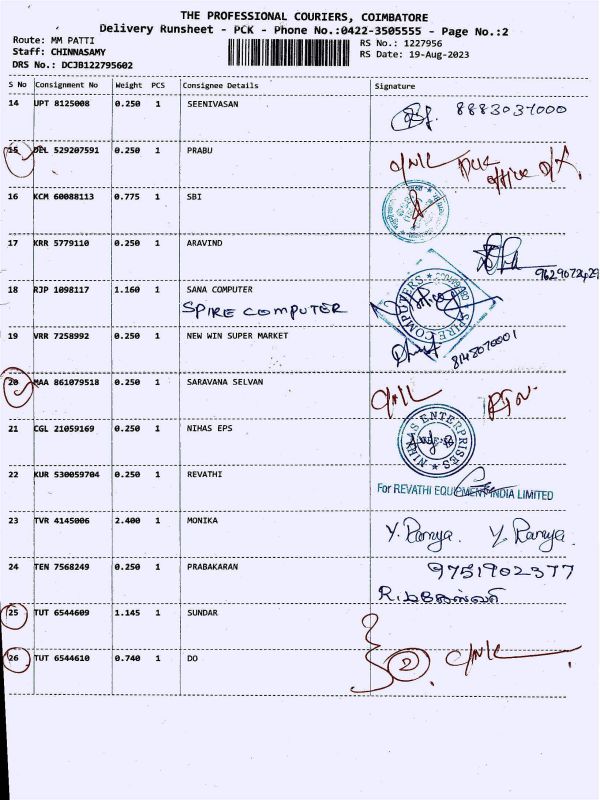 THE PROFESSIONAL COURIERS, COIMBATORE
Delivery Runsheet - PCK - Phone No.:0422-3505555 - Page No.:2
Route: MM PATTI
RS No.: 1227956
Staff: CHINNASAMY
RS Date: 19-Aug-2023
DRS No.: DCJB122795602
S No Consignment No Weight PCS Consignee Details Signature
14 UPT 8125008 0.250 1 SEENIVASAN 8883037000
15 DEL 529207591 0.250 1 PRABU
16 KCM 60088113 0.775 1 SBI
17 KRR 5779110 0.250 1 ARAVIND
9629072429
18 RJP 1098117 1.160 1 SANA COMPUTER
SPIRE COMPUTER
SPIRE COMPUTERS
19 VRR 7258992 0.250 1 NEW WIN SUPER MARKET
8148070001
20 MAA 861079518 0.250 1 SARAVANA SELVAN
21 CGL 21059169 0.250 1 NIHAS EPS
NIHAS ENTERPRISES
22 KUR 530059704 0.250 1 REVATHI
For REVATHI EQUIPMENT INDIA LIMITED
23 TVR 4145006 2.400 1 MONIKA Y. Ramya. Y. Ramya.
24 TEN 7568249 0.250 1 PRABAKARAN 9751902377
25 TUT 6544609 1.145 1 SUNDAR
26 TUT 6544610 0.740 1 DO
2